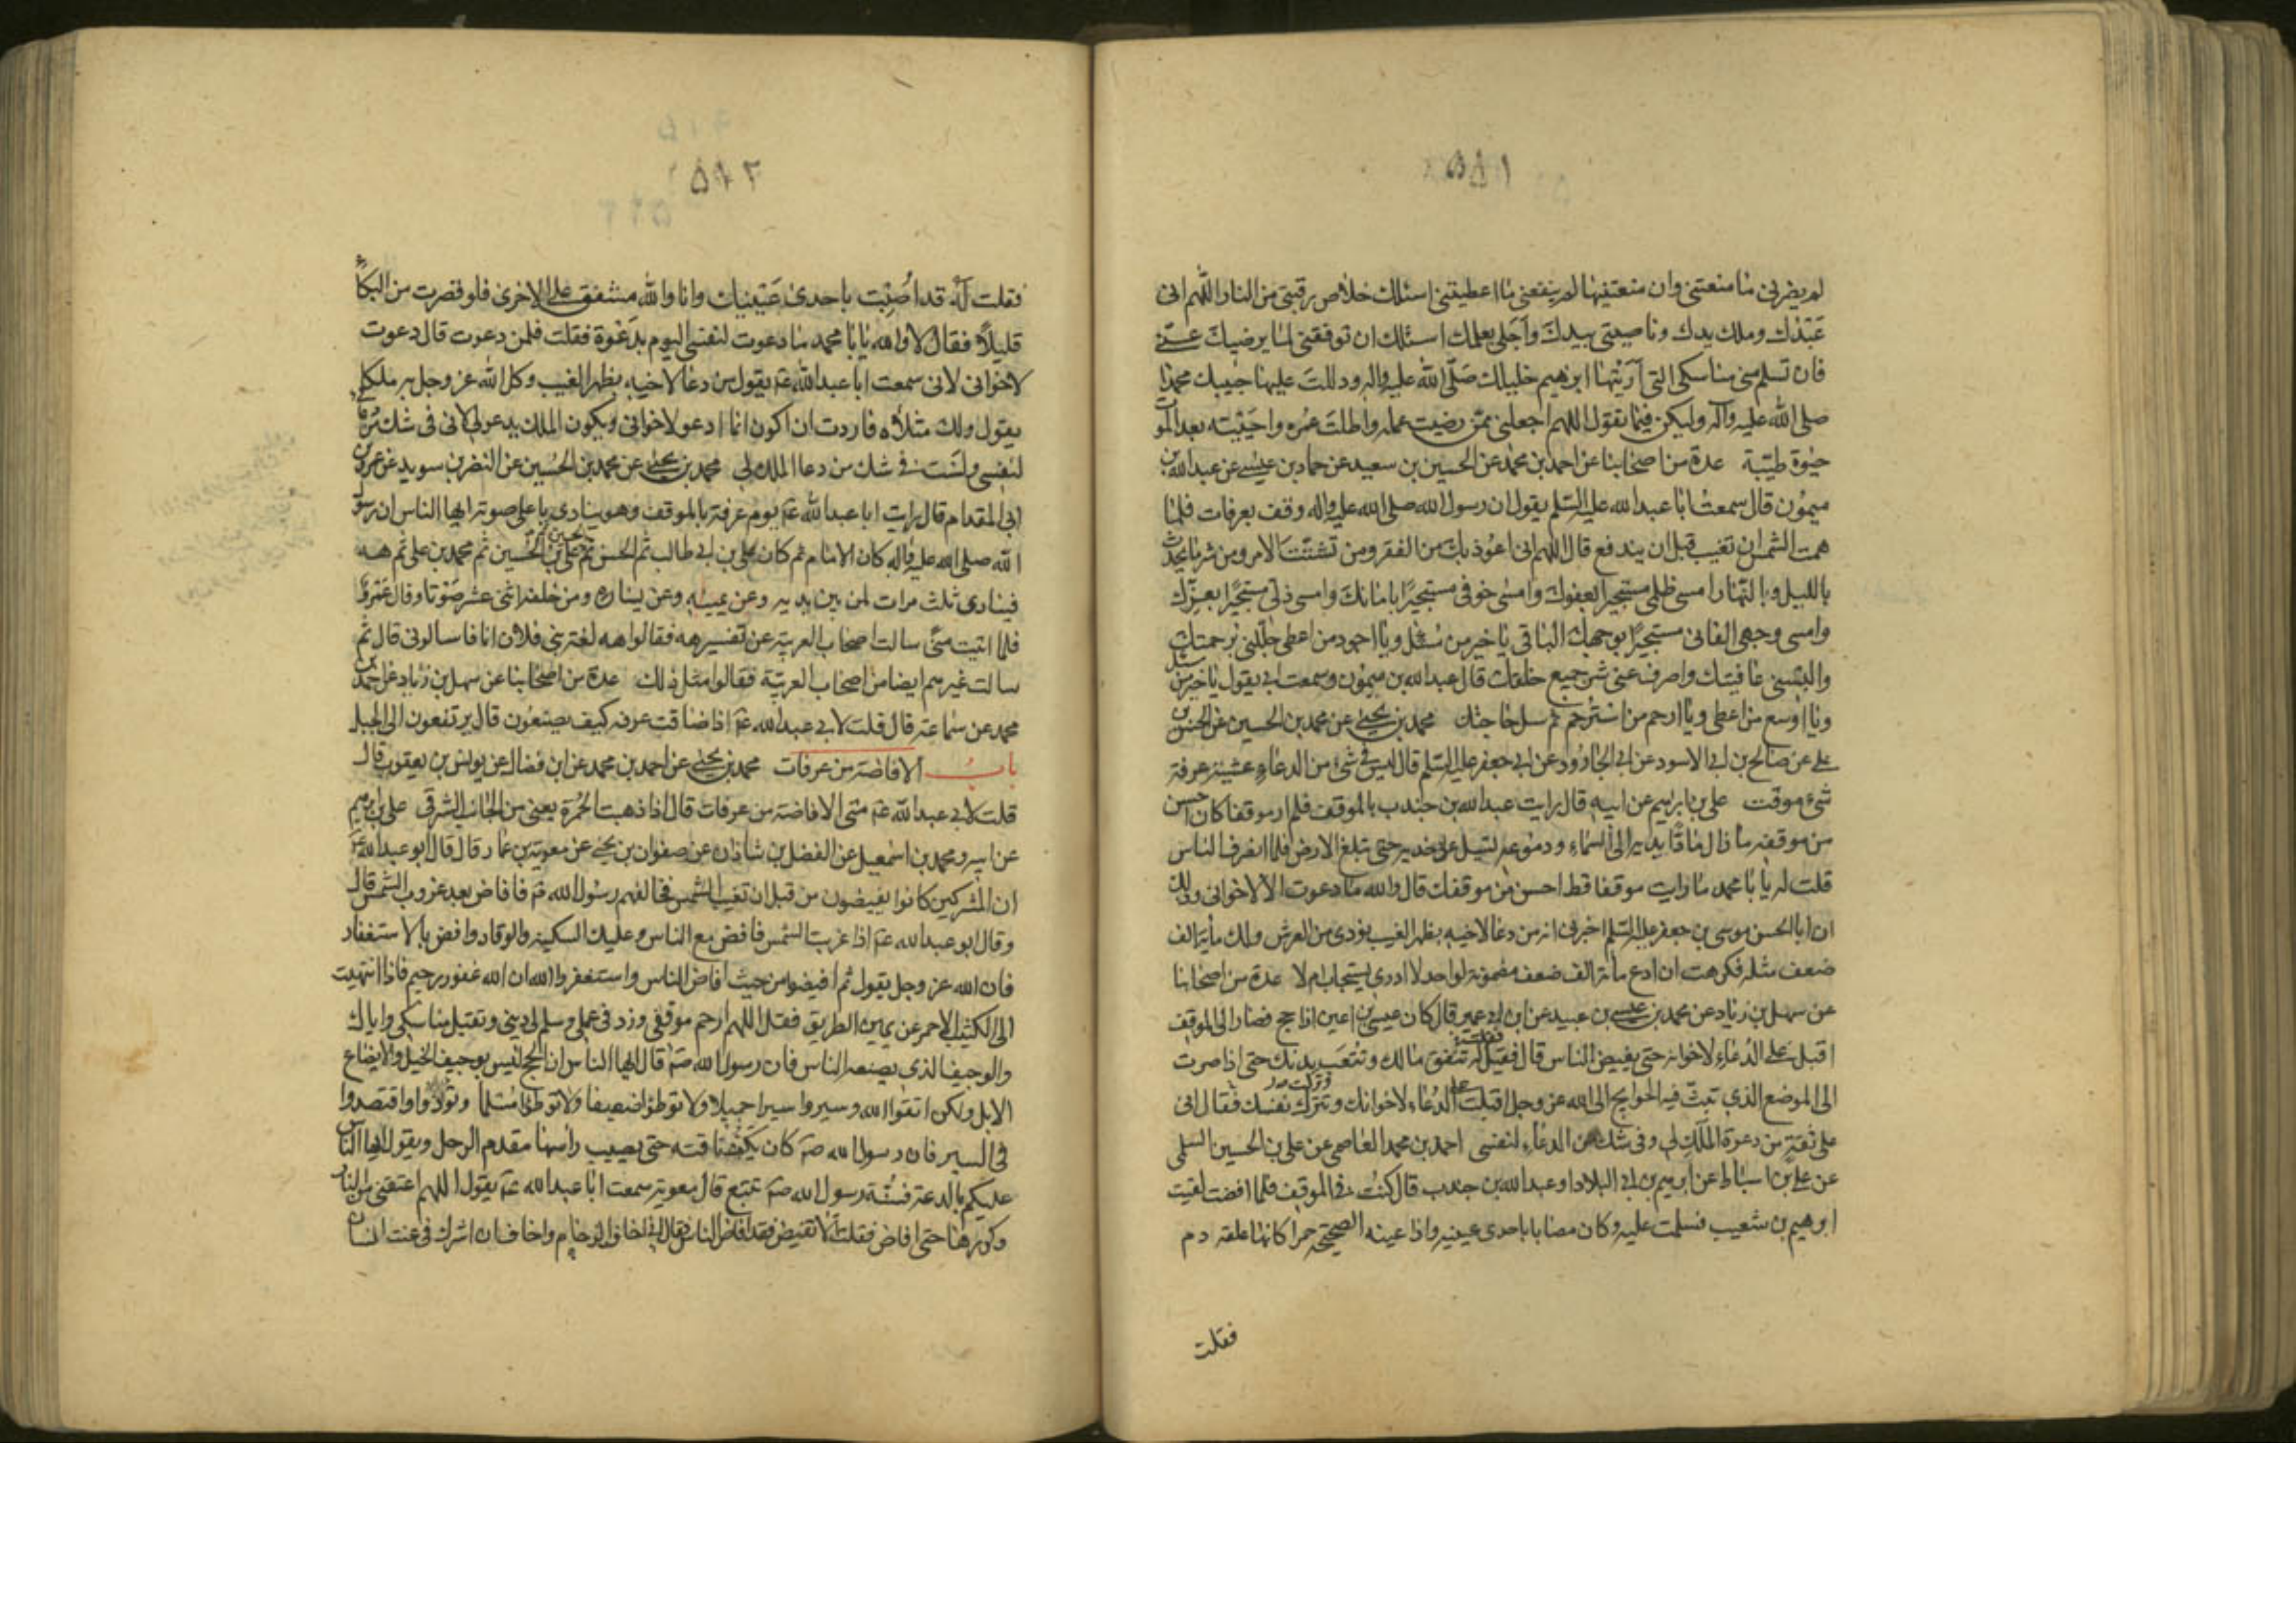 لم يضرنى ما منعتنى وان منعتنيها لم ينفعنى ما اعطيتنى اسئلك خلاص رقبتى من النار اللهم انى
عَبْدُك وملك يدك وناصيتى بيدك واجلى بعلمك اسئلك ان توفقنى لما يرضيك عنّى
فان تسلم منى مناسكى التى اَرَيْتَها ابرهيم خليلك صَلّى الله عليه واله ودللتَ عليها حبيبك محمدا
صلى الله عليه وآله وليكن فيما يقول اللهم اجعلنى ممّن رضيت عمله واطلتَ عمُره واحيَيْته بعد الموت
حيوة طيّبة عدة من اصحابنا عن احمد بن محمد عن الحسين بن سعيد عن حماد بن عيسى عن عبد الله بن
ميمون قال سمعت ابا عبد الله عليه السّلم يقول ان رسول الله صلى الله عليه واله وقف بعرفات فلما
همت الشمس ان تغيب قبل ان يندفع قال اللهم انى اعوذ بك من الفقر ومن تشتّت الامر ومن شر ما يحدث
بالليل وبالنّهار امسى ظلمى مستجيرا بعفوك وامسى خوفى مستجيرًا بامانك وامسى ذلى مستجيرًا بعزّك
وامسى وجهى الفانى مستجيرًا بوجهك الباقى يا خير من سُئل ويا اجود من اعطى جلّلنى برحمتك
والبسنى عافيتك واصرف عنى شر جميع خلقك قال عبد الله بن ميمون وسمعت ابى يقول يا خير من سئل
ويا اوسع من اعطى ويا ارحم من استرحم ثم سل حاجتك محمد بن يحيى عن محمد بن الحسين عن الحسن بن
على عن صالح بن ابى الاسود عن ابى الجارود عن ابى جعفر عليه السّلم قال ليس فى شئ من الدعاء عشية عرفة
شئ موقت على بن ابراهيم عن ابيه قال رايت عبد الله بن جندب بالموقف فلم ار موقفا كان احسن
من موقفه ما زال مادًا يديه الى السّماء ودموعه تسيل على خديه حتى تبلغ الارض فلما انصرف الناس
قلت له يا ابا محمد ما رايت موقفا قط احسن من موقفك قال والله ما دعوت الا لاخوانى وذلك
ان ابا الحسن موسى بن جعفر عليه السّلم اخبرنى انه من دعا لاخيه بظهر الغيب نودى من العرش ولك مأية الف
ضعف مثله فكرهت ان ادع مأة الف ضعف مضمونة لواحد لا ادرى يستجاب ام لا عدة من اصحابنا
عن سهل بن زياد عن محمد بن عيسى بن عبيد عن ابن ابى عمير قال كان عيسى بن اعين اذا حج فصار الى الموقف
اقبل على الدعاء لاخوانه حتى يفيض الناس قال فقيل له تنفق مالك وتتعب بدنك حتى اذا صرت
الى الموضع الذى تبثّ فيه الحوايج الى الله عز وجل اقبلت على الدُعاء لاخوانك وتترك نفسك فقال انى
على ثقة من دعوة المَلَك لى وفى شك من الدعاء لنفسى احمد بن محمد العاصمى عن على بن الحسين السلمى
عن على بن اسباط عن ابرهيم بن ابى البلاد او عبد الله بن جندب قال كنتُ فى الموقف فلما افضت لقيت
ابرهيم بن شعيب فسلمت عليه وكان مصابا باحدى عينيه واذا عينه الصحيحة حمرا كانها علقة دم
فقلت
٥٩٢
فقلت له قد اُصِبْتَ باحدى عَيْنيك وانا والله مشفق على الاخرى فلو قصرت من البكاء
قليلاً فقال لا والله يا ابا محمد ما دعوت لنفسى اليوم بدَعْوة فقلت فلمن دعوت قال دعوت
لاخوانى لانى سمعت ابا عبد الله عم يقول من دعا لاخيه بظهر الغيب وكل الله عز وجل به ملكا
يقول ولك مثلاه فاردت ان اكون انما ادعو لاخوانى ويكون الملك يدعو لى لانى فى شك من دعائى
لنفسى ولسْت فى شك من دعا الملك لى محمد بن يحيى عن محمد بن الحسين عن النضر بن سويد عن عمرو بن
ابى المقدام قال رايت ابا عبد الله عم يوم عرفة بالموقف وهو ينادى باعلى صوته ايها الناس ان رسول
الله صلى الله عليه واله كان الامام ثم كان على بن ابى طالب ثم الحسن ثم الحسين ثم على بن الحسين ثم محمد بن على ثم هه
فينادى ثلث مرات لمن بين يديه وعن يمينه وعن يساره ومن خلفه اثنى عشر صَوْتا وقال عَمْرو
فلما اتيت منى سالت اصحاب العربية عن تفسير هه فقالوا هه لغة بنى فلان انا فاسالونى قال ثم
سالت غيرهم ايضا من اصحاب العربيّة فقالوا مثل ذلك عدة من اصحابنا عن سهل بن زياد عن احمد بن
محمد عن سماعة قال قلت لابى عبد الله عم اذا ضاقت عرفه كيف يصنعون قال يرتفعون الى الجبل
باب الافاضة من عرفات محمد بن يحيى عن احمد بن محمد عن ابن فضال عن يونس بن يعقوب قال
قلت لابى عبد الله عم متى الافاضة من عرفات قال اذا ذهبت الحُمْرة يعنى من الجانب الشرقى على بن ابرهيم
عن ابيه ومحمد بن اسمعيل عن الفضل بن شاذان عن صفوان بن يحيى عن معوية بن عمار قال قال ابو عبد الله عم
ان المشركين كانوا يفيضون من قبل ان تغيب الشمس فخالفهم رسول الله صم فافاض بعد غروب الشمس قال
وقال ابو عبد الله عم اذا غربت الشمس فافض مع الناس وعليك السكينة والوقار وافض بالاستغفار
فان الله عز وجل يقول ثم افيضوا من حيث افاض الناس واستغفروا الله ان الله غفور رحيم فاذا انتهيت
الى الكثيب الاحمر عن يمين الطريق فقل اللهم ارحم موقفى وزد فى عملى وسلم لى دينى وتقبل مناسكى واياك
والوجيف الذى يصنعه الناس فان رسول الله صم قال ايها الناس ان الحج ليس بوجيف الخيل ولا ايضاع
الابل ولكن اتقوا الله وسيروا سيرا جميلا ولا توطؤا ضعيفا ولا توطؤا مُسْلما وتوادوا واقتصدوا
فى السير فان رسول الله صم كان يكف ناقته حتى يصيب راسها مقدم الرحل ويقول ايها الناس
عليكم بالدعة فسُنّة رسول الله صم تتبع قال معوية سمعت ابا عبد الله عم يقول اللهم اعتقنى من النار
وكررها حتى افاض فقلت الا تفيض فقد افاض الناس فقال انى اخاف الزحام واخاف ان اشرك فى عنت انسان